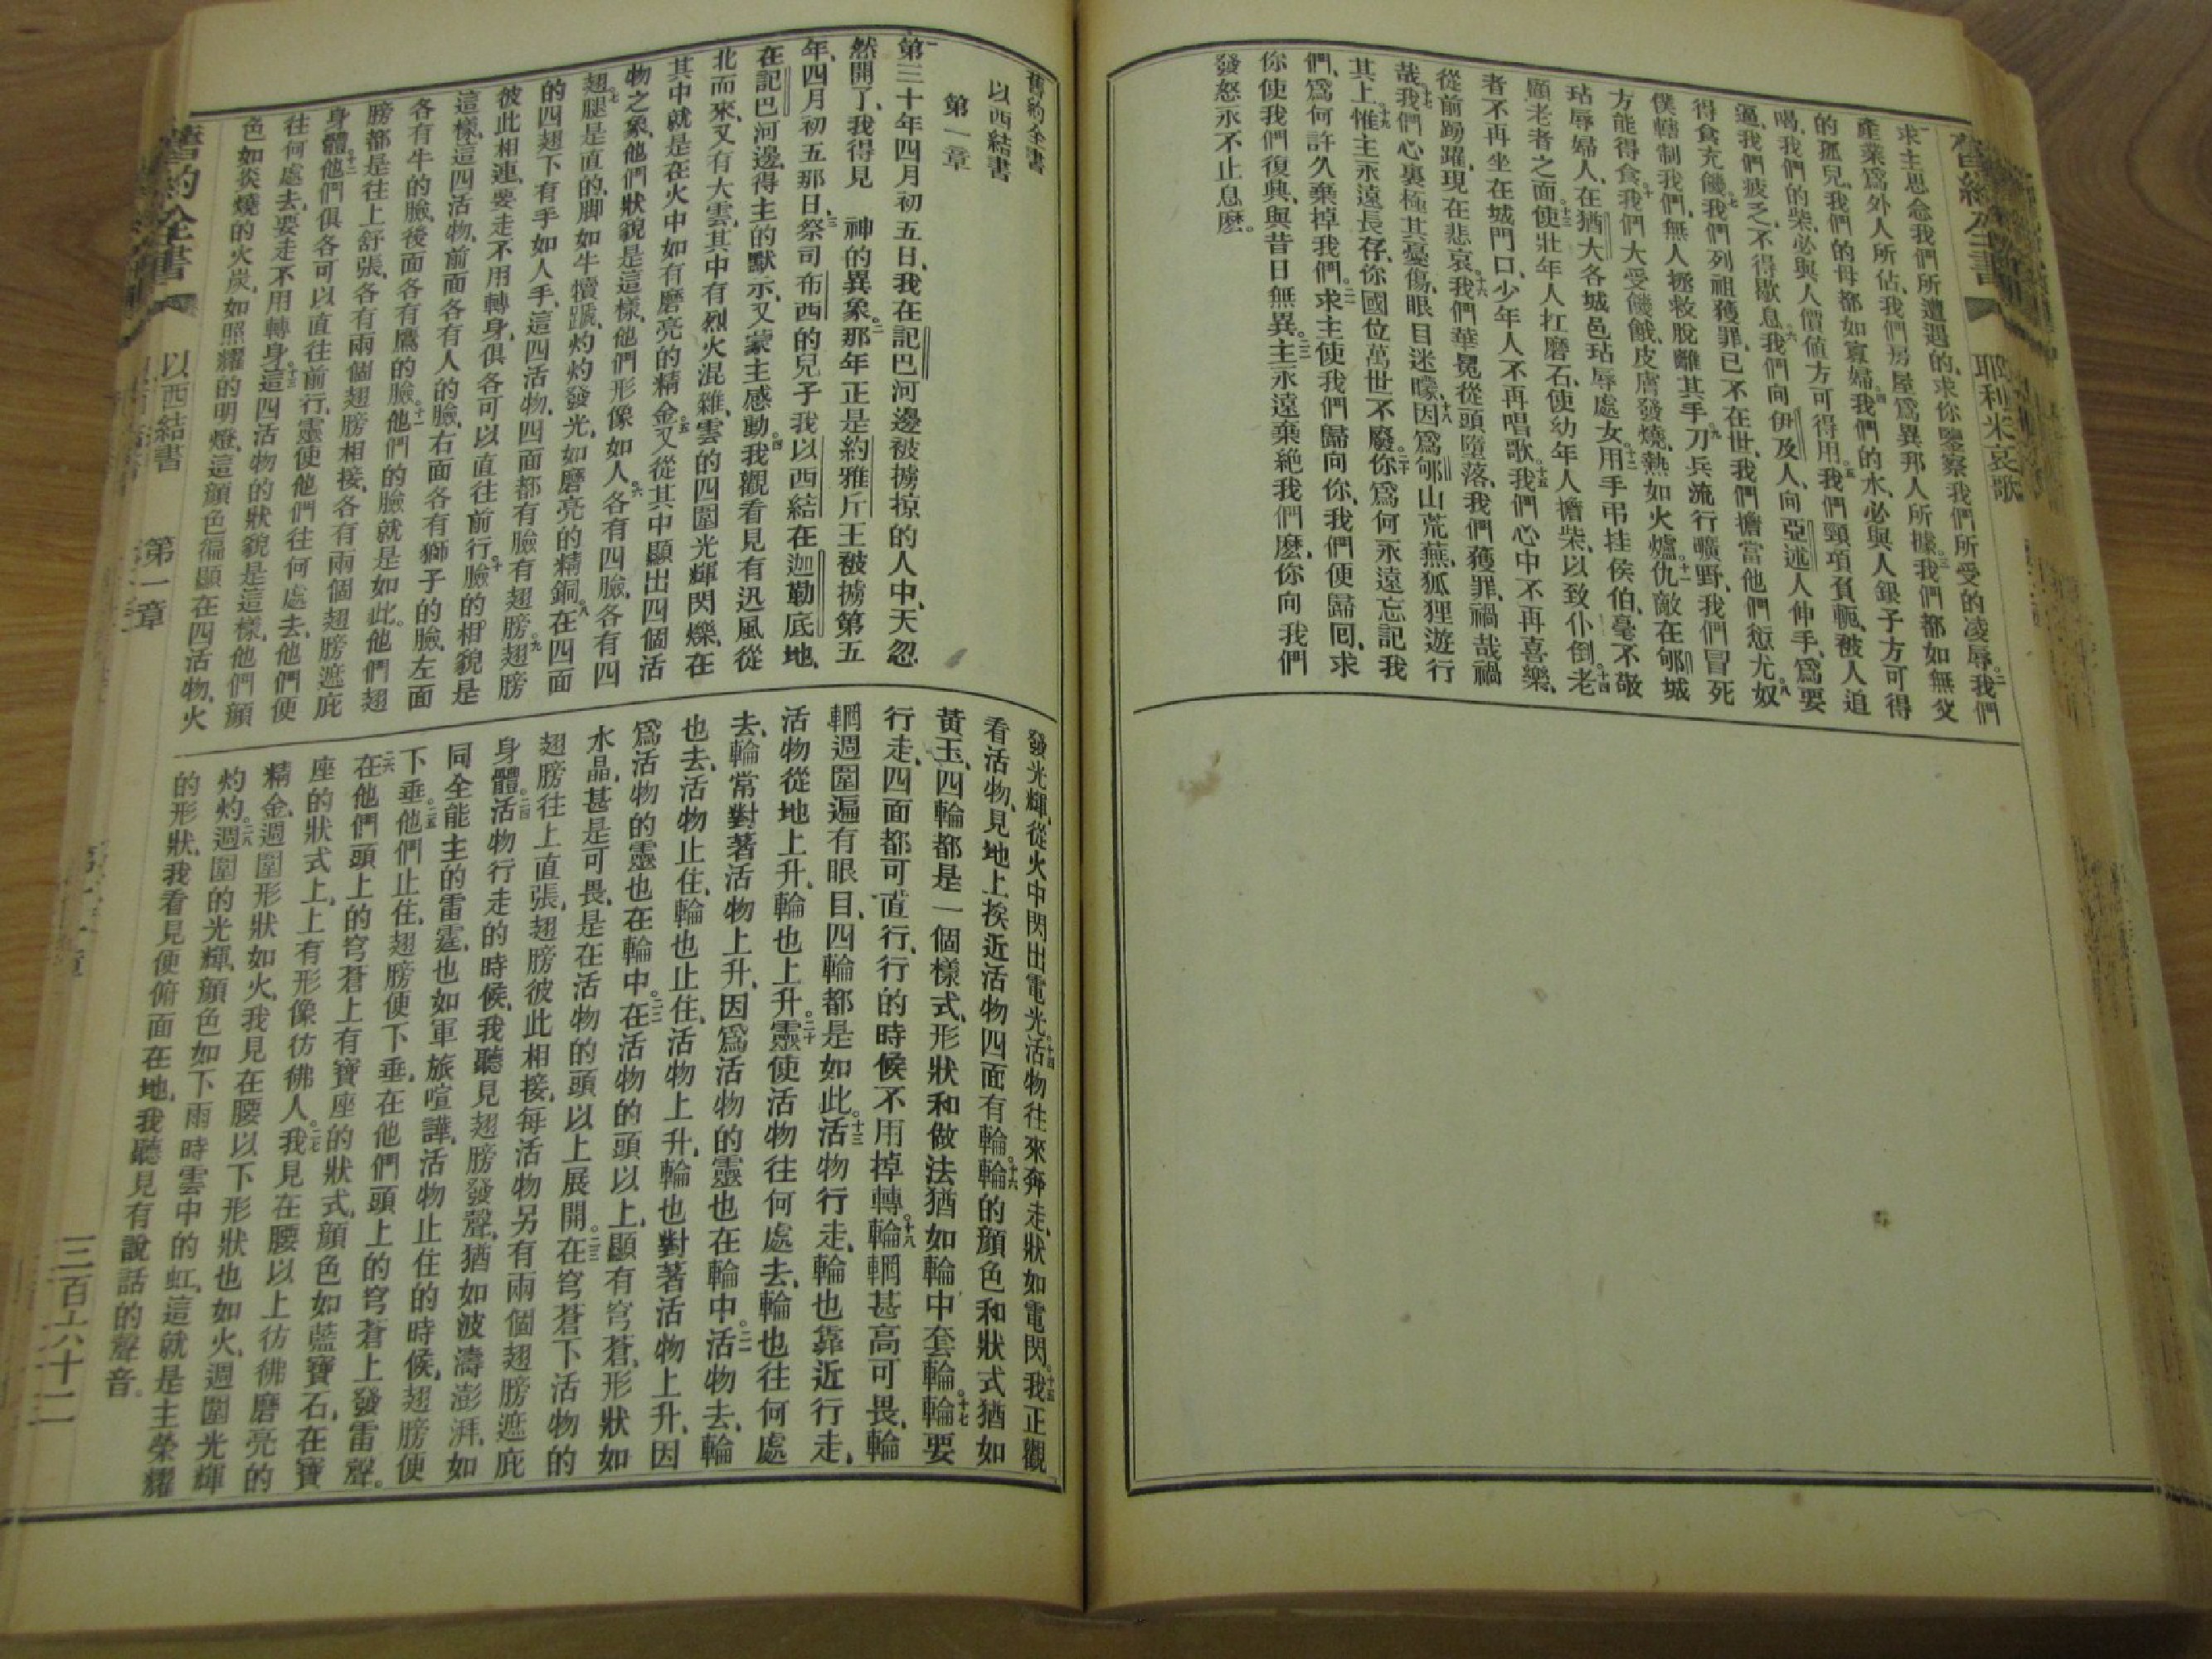 舊約全書
耶利米哀歌
求主思念我們所遭遇的、求你鑒察我們所受的凌辱。二我們
產業爲外人所佔、我們房屋爲異邦人所據。三我們都如無父
的孤兒、我們的母都如寡婦。四我們的水、必與人銀子方可得
喝、我們的柴、必與人價値方可得用。五我們頸項負軛、被人追
逼、我們疲乏、不得歇息。六我們向伊及人、向亞述人伸手、爲要
得食充饑。七我們列祖獲罪、已不在世、我們擔當他們愆尤。八奴
僕轄制我們、無人拯救脫離其手。九刀兵流行曠野、我們冒死
方能得食。十我們大受饑餓、皮膚發燒、熱如火爐。十一仇敵在郇城
玷辱婦人、在猶大各城邑玷辱處女。十二用手弔挂侯伯、毫不敬
顯老者之面。十三使壯年人扛磨石、使幼年人擔柴、以致仆倒。十四老
者不再坐在城門口、少年人不再唱歌。十五我們心中不再喜樂、
從前踴躍、現在悲哀。十六我們華冕從頭墮落、我們獲罪、禍哉禍
哉。十七我們心裏極其憂傷、眼目迷矇。十八因爲郇山荒蕪、狐狸遊行
其上。十九惟主永遠長存、你國位萬世不廢。二十你爲何永遠忘記我
們、爲何許久棄掉我們。二一求主使我們歸向你、我們便歸回、求
你使我們復興、與昔日無異。二二主永遠棄絕我們麽、你向我們
發怒永不止息麽。
舊約全書
以西結書
第一章
一第三十年四月初五日、我在記巴河邊被擄掠的人中、天忽
然開了、我得見 神的異象。二那年正是約雅斤王被擄第五
年、四月初五那日、三祭司布西的兒子我以西結在迦勒底地、
在記巴河邊、得主的默示、又蒙主感動。四我觀看見有迅風從
北而來、又有大雲、其中有烈火混雜、雲的四圍光輝閃爍、在
其中就是在火中如有磨亮的精金。五又從其中顯出四個活
物之象、他們狀貌是這樣、他們形像如人。六各有四臉、各有四
翅。七腿是直的、脚如牛犢蹏、灼灼發光、如磨亮的精銅。八在四面
的四翅下有手如人手、這四活物、四面都有臉有翅膀。九翅膀
彼此相連、要走不用轉身、俱各可以直往前行。十臉的相貌是
這樣、這四活物、前面各有人的臉、右面各有獅子的臉、左面
各有牛的臉、後面各有鷹的臉。十一他們的臉就是如此。他們翅
膀都是往上舒張、各有兩個翅膀相接、各有兩個翅膀遮庇
身體。十二他們俱各可以直往前行、靈使他們往何處去、他們便
往何處去、要走不用轉身。十三這四活物的狀貌是這樣、他們顏
色如炎燒的火炭、如照耀的明燈、這顏色徧顯在四活物、火
發光輝、從火中閃出電光。十四活物往來奔走、狀如電閃。十五我正觀
看活物、見地上挨近活物四面有輪。十六輪的顏色和狀式猶如
黃玉、四輪都是一個樣式、形狀和做法猶如輪中套輪。十七輪要
行走、四面都可直行、行的時候不用掉轉。十八輪輞甚高可畏、輪
輞週圍遍有眼目、四輪都是如此。十三活物行走、輪也靠近行走、
活物從地上升、輪也上升。二十靈使活物往何處去、輪也往何處
去、輪常對著活物上升、因爲活物的靈也在輪中。二一活物去、輪
也去、活物止住、輪也止住、活物上升、輪也對著活物上升、因
爲活物的靈也在輪中。二二在活物的頭以上、顯有穹蒼、形狀如
水晶、甚是可畏、是在活物的頭以上展開。二三在穹蒼下活物的
翅膀往上直張、翅膀彼此相接、每活物另有兩個翅膀遮庇
身體。二四活物行走的時候、我聽見翅膀發聲、猶如波濤澎湃、如
同全能主的雷霆、也如軍旅喧譁、活物止住的時候、翅膀便
下垂。二五他們止住、翅膀便下垂、在他們頭上的穹蒼上發雷聲。
二六在他們頭上的穹蒼上有寶座的狀式、顏色如藍寶石、在寶
座的狀式上、上有形像彷彿人。二七我見在腰以上彷彿磨亮的
精金、週圍形狀如火、我見在腰以下形狀也如火、週圍光輝
灼灼。二八週圍的光輝、顏色如下雨時雲中的虹、這就是主榮耀
的形狀、我看見便俯面在地、我聽見有說話的聲音。
舊約全書
以西結書
第一章
三百六十二